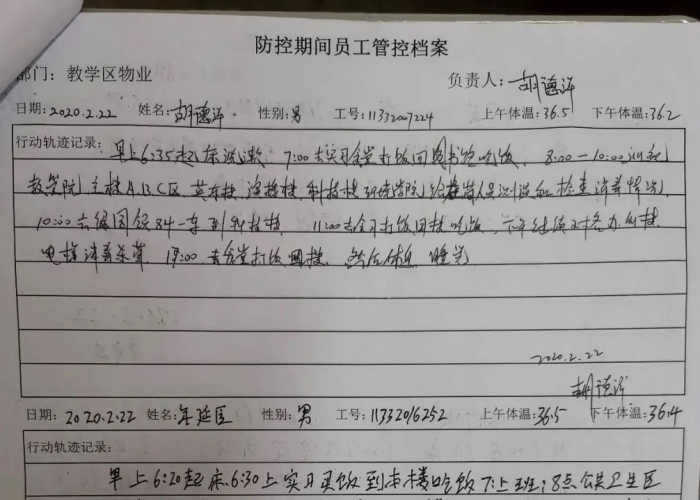 防控期间员工管控档案
部门：教学区物业 负责人：胡德洋
日期：2020.2.22 姓名：胡德洋 性别：男 工号：11332007224 上午体温：36.5 下午体温：36.2
行动轨迹记录：早上6:35起床洗漱、7:00去实习食堂打饭回图书馆吃饭、8:00—10:00
教学院主楼A.B.C区 英东楼 科技楼 环境学院 给在岗人员测温和检查消毒情况
10:00去 84一车到科技楼 11:00去 打饭回楼吃饭、下午继续对各办公楼
电梯消毒 17:00去食堂打饭回楼、然后休息 睡觉
2020.2.22
胡德洋
日期：2020.2.22 姓名：年延臣 性别：男 工号：11332016252 上午体温：36.5 下午体温：36.4
行动轨迹记录：
早上6:20起床、6:30上实习买饭到本楼吃饭7:上班；8点公共卫生区